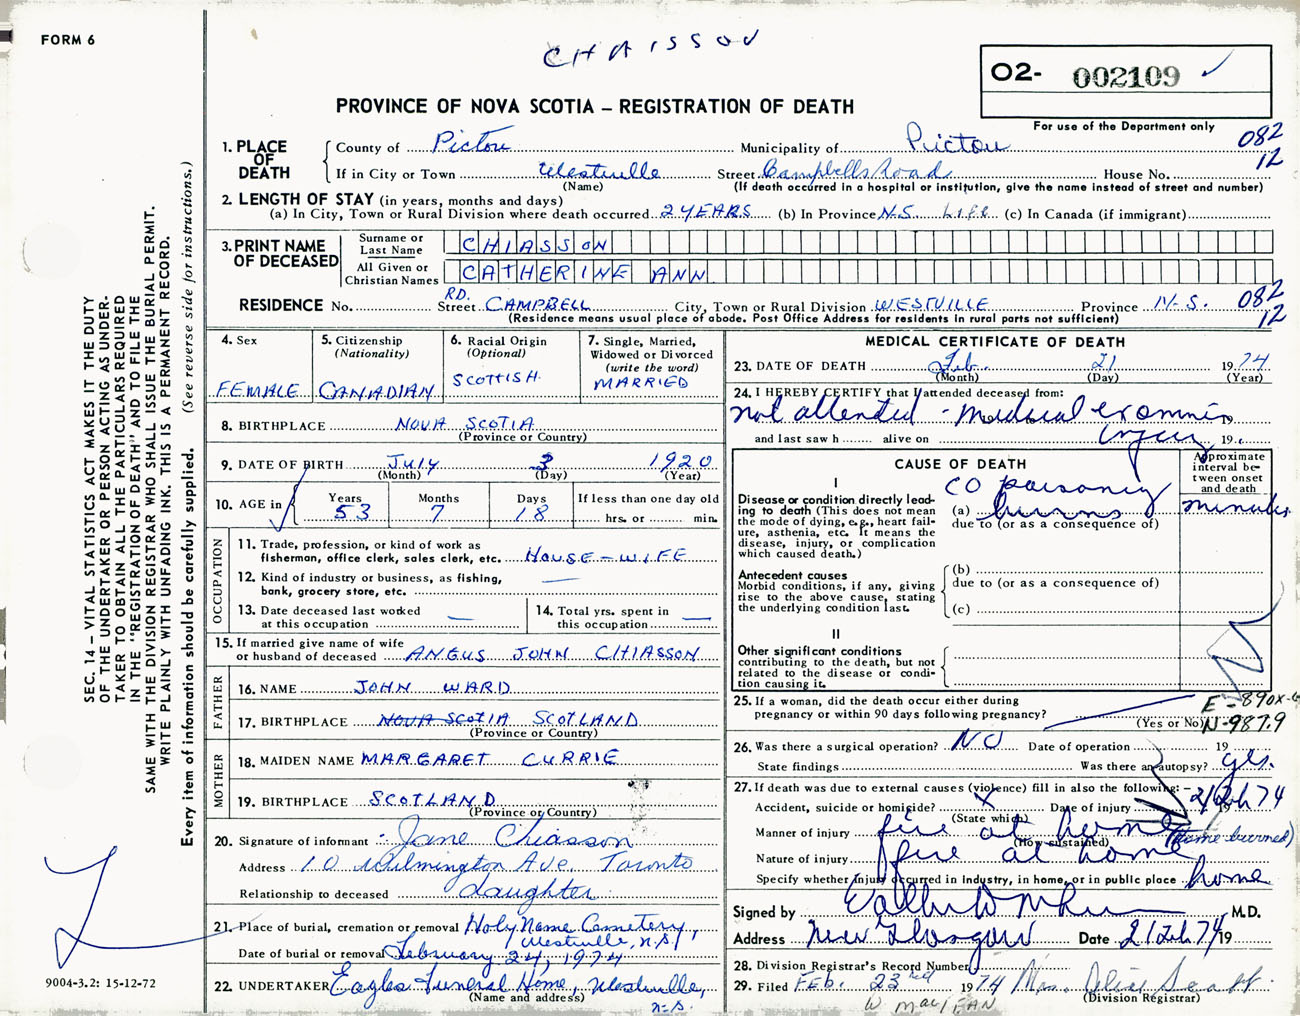 FORM 6
CHAISSON
O2- 002109 ✓
PROVINCE OF NOVA SCOTIA – REGISTRATION OF DEATH
For use of the Department only
1. PLACE OF DEATH
County of Pictou Municipality of Pictou 082
If in City or Town Westville Street Campbells Road House No. 12
(Name) (If death occurred in a hospital or institution, give the name instead of street and number)
2. LENGTH OF STAY (in years, months and days)
(a) In City, Town or Rural Division where death occurred 2 YEARS (b) In Province N.S. LIFE (c) In Canada (if immigrant)
3. PRINT NAME OF DECEASED
Surname or Last Name CHIASSON
All Given or Christian Names CATHERINE ANN
RESIDENCE No. Street RD. CAMPBELL City, Town or Rural Division WESTVILLE Province N.S. 082
(Residence means usual place of abode. Post Office Address for residents in rural parts not sufficient) 12
4. Sex FEMALE
5. Citizenship (Nationality) CANADIAN
6. Racial Origin (Optional) SCOTTISH
7. Single, Married, Widowed or Divorced (write the word) MARRIED
8. BIRTHPLACE NOVA SCOTIA
(Province or Country)
9. DATE OF BIRTH July 3 1920
(Month) (Day) (Year)
10. AGE in Years 53 Months 7 Days 18 If less than one day old hrs. or min.
OCCUPATION
11. Trade, profession, or kind of work as
fisherman, office clerk, sales clerk, etc. HOUSE-WIFE
12. Kind of industry or business, as fishing,
bank, grocery store, etc. —
13. Date deceased last worked
at this occupation —
14. Total yrs. spent in
this occupation —
15. If married give name of wife
or husband of deceased ANGUS JOHN CHIASSON
FATHER
16. NAME JOHN WARD
17. BIRTHPLACE NOVA SCOTIA SCOTLAND
(Province or Country)
MOTHER
18. MAIDEN NAME MARGARET CURRIE
19. BIRTHPLACE SCOTLAND
(Province or Country)
20. Signature of informant Jane Chiasson
Address 10 Wilmington Ave. Toronto
Relationship to deceased daughter
21. Place of burial, cremation or removal Holy Name Cemetery,
Westville, N.S.
Date of burial or removal February 24, 1974
22. UNDERTAKER Eagles Funeral Home, Westville,
(Name and address) N.S.
MEDICAL CERTIFICATE OF DEATH
23. DATE OF DEATH Feb. 21 1974
(Month) (Day) (Year)
24. I HEREBY CERTIFY that I attended deceased from:
not attended - Medical
and last saw h alive on 19
CAUSE OF DEATH
Approximate interval between onset and death
I
Disease or condition directly leading to death (This does not mean the mode of dying, e.g., heart failure, asthenia, etc. It means the disease, injury, or complication which caused death.)
CO poisoning
(a) burns minutes
due to (or as a consequence of)
Antecedent causes
Morbid conditions, if any, giving rise to the above cause, stating the underlying condition last.
(b)
due to (or as a consequence of)
(c)
II
Other significant conditions
contributing to the death, but not related to the disease or condition causing it.
25. If a woman, did the death occur either during
pregnancy or within 90 days following pregnancy?
(Yes or No) N-987.9
26. Was there a surgical operation? NO Date of operation 19
State findings Was there an autopsy? yes.
27. If death was due to external causes (violence) fill in also the following: –
Accident, suicide or homicide? X Date of injury 21 Feb 74 19
(State which)
Manner of injury fire at home (home burned)
(How sustained)
Nature of injury fire at home
Specify whether injury occurred in industry, in home, or in public place home
Signed by M.D.
Address New Glasgow Date 21 Feb 74 19
28. Division Registrar's Record Number
29. Filed FEB. 23rd 1974 Mrs. Alice Scott
(Division Registrar)
W MacLEAN
SEC. 14 – VITAL STATISTICS ACT MAKES IT THE DUTY
OF THE UNDERTAKER OR PERSON ACTING AS UNDER-
TAKER TO OBTAIN ALL THE PARTICULARS REQUIRED
IN THE "REGISTRATION OF DEATH" AND TO FILE THE
SAME WITH THE DIVISION REGISTRAR WHO SHALL ISSUE THE BURIAL PERMIT.
WRITE PLAINLY WITH UNFADING INK. THIS IS A PERMANENT RECORD.
Every item of information should be carefully supplied. (See reverse side for instructions.)
9004-3.2: 15-12-72